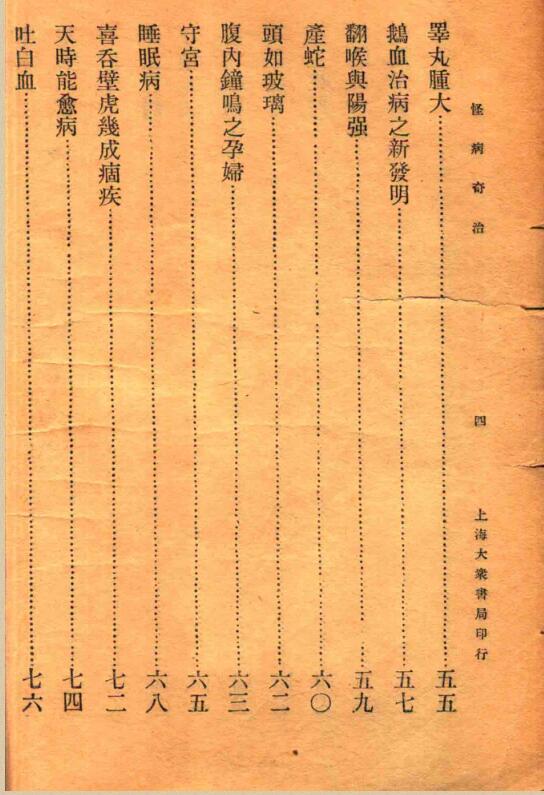 怪病奇治 四 上海大衆書局印行
睪丸腫大…………五五
鵝血治病之新發明…………五七
翻喉與陽强…………五九
產蛇…………六〇
頭如玻璃…………六二
腹內鐘鳴之孕婦…………六三
守宮…………六五
睡眠病…………六八
喜吞壁虎幾成痼疾…………七二
天時能愈病…………七四
吐白血…………七六